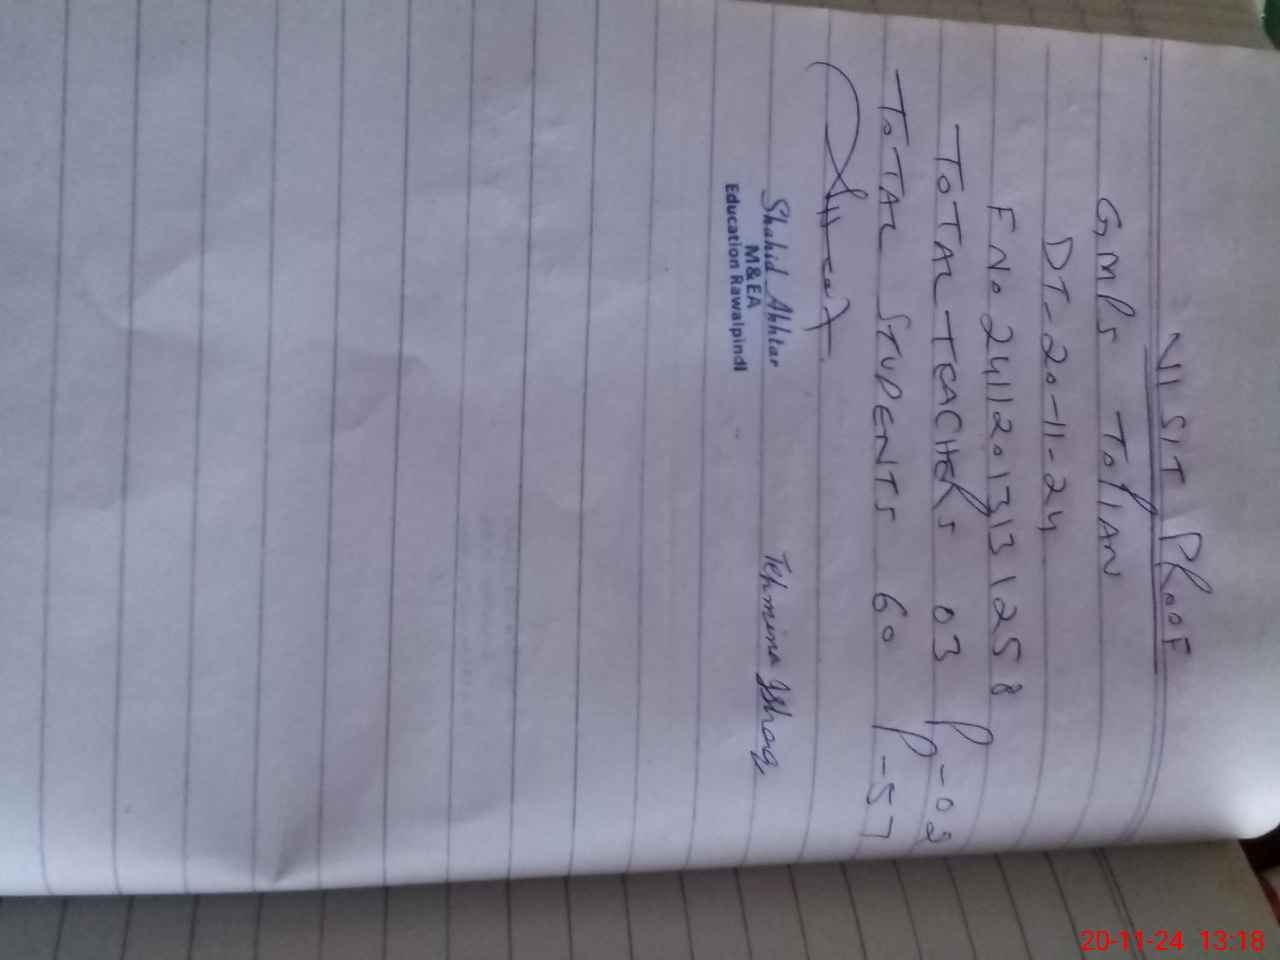 VISIT PROOF
GMPS TOPIAN
DT-20-11-24
FNo 24112013131258
TOTAL TEACHERS 03 P-03
TOTAL STUDENTS 60 P-57
Shahid Akhtar
M&EA
Education Rawalpindi
Tehmina Ishaq
20-11-24 13:18